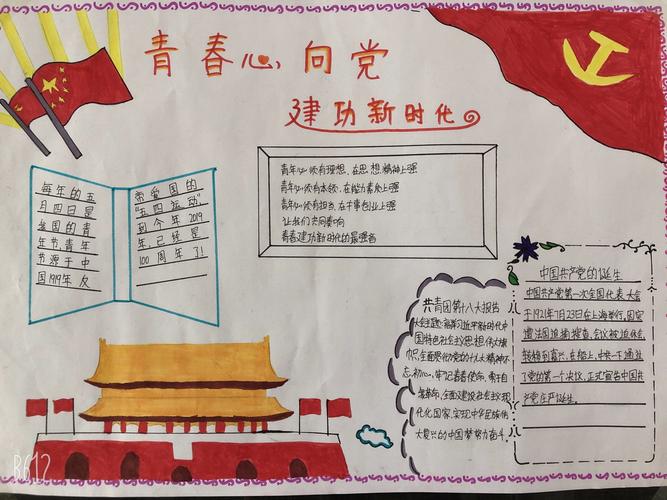 青春心向党
建功新时代
每年的五
月四日是
我国的青
年节,青年
节源于中
国1919年反
帝爱国的
"五四运动",
到今年2019
年已经是
100周年了!
青年必须有理想,在思想精神上强
青年必须有本领,在能力素质上强
青年必须有担当,在干事创业上强
让我们共同奏响
青春建功新时代的最强音
共青团第十八大报告
大会主题:高举习近平新时代中
国特色社会主义思想伟大旗
帜,全面贯彻党的十九大精神不
忘初心,牢记青春使命,勇于自
我革命,全面建设社会主义现
代化国家,实现中华民族伟
大复兴的中国梦努力奋斗.
中国共产党的诞生
中国共产党第一次全国代表大会
于1921年7月23日在上海举行,因突
遭法国巡捕搜查,会议被迫休会,
转移到嘉兴,在船上,中共一下通过
了党的第一个决议,正式宣告中国共
产党庄严诞生.
R612